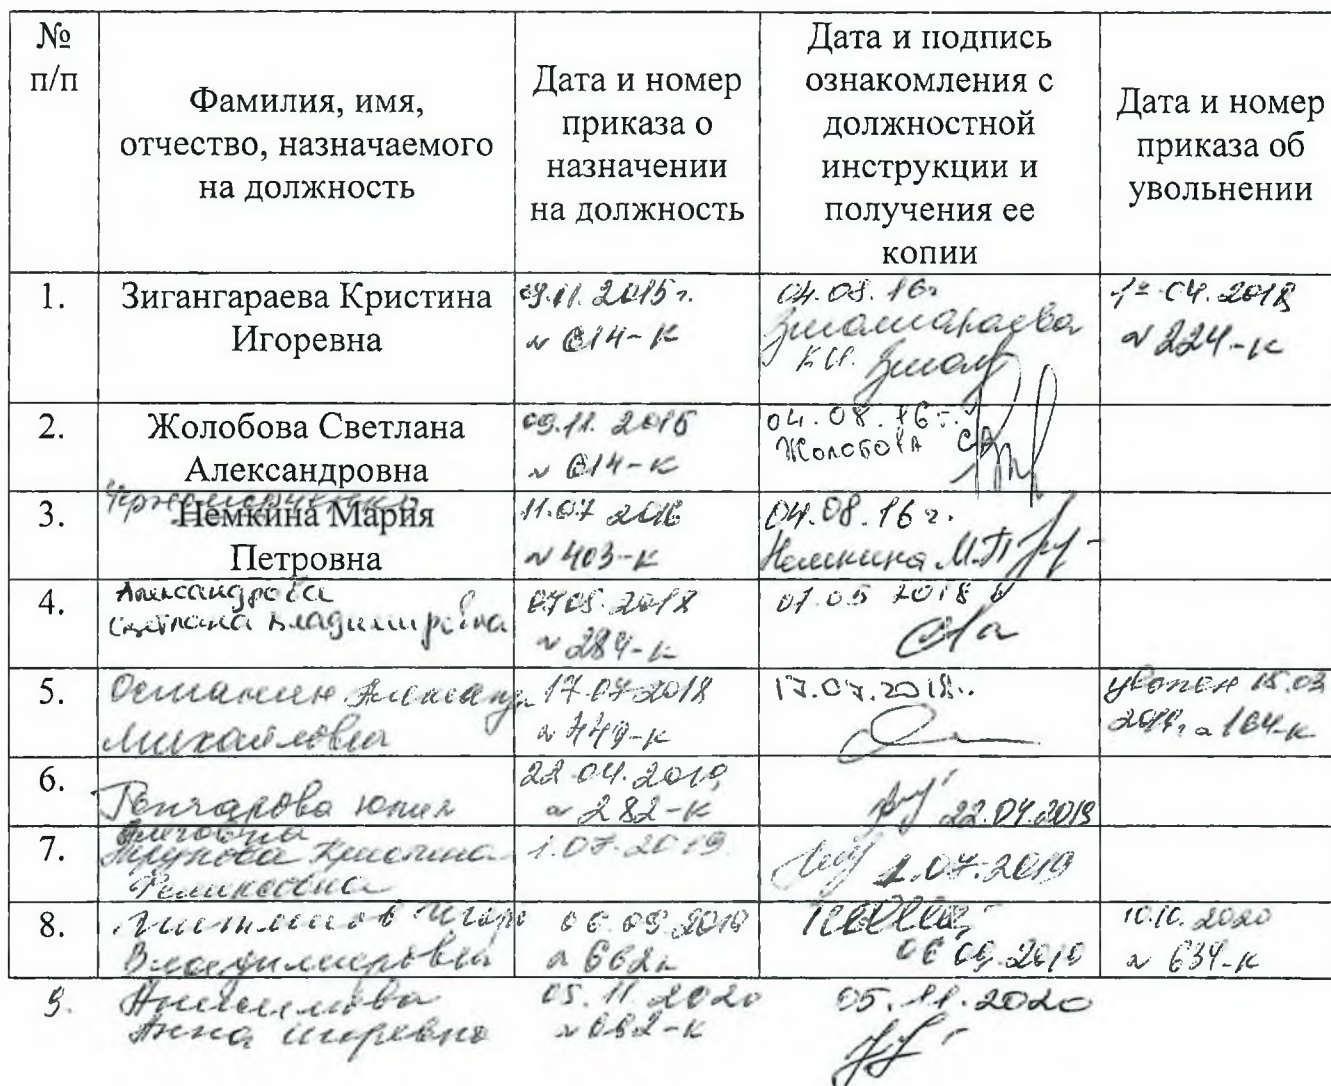 № п/п
Фамилия, имя,
отчество, назначаемого
на должность
Дата и номер
приказа о
назначении
на должность
Дата и подпись
ознакомления с
должностной
инструкции и
получения ее
копии
Дата и номер
приказа об
увольнении
1.
Зигангараева Кристина
Игоревна
09.11.2015г.
04.08.16г
04.2018
№ 224-к
2.
Жолобова Светлана
Александровна
09.11.2015
04.08.16г.
Жолобова
3.
Немкина Мария
Петровна
11.07 2016
№ 403-к
04.08.16г.
Немкина М.П
4.
Александрова
Светлана Владимировна
2018
№ 284-к
2018
5.
Михайлович
17.07.2018
№ 449-к
17.07.2018
уволен 15.03
164-к
6.
Гончарова Юлия
Олеговна
22.04.2019
№ 282-к
22.04.2019
7.
Кристина
1.07.2019
1.07.2019
8.
Игорь
Владимирович
06.09.2019
№ 662к
06.09.2019
10.10.2020
№ 634-к
9.
Анисимова
Анна Игоревна
05.11.2020
05.11.2020